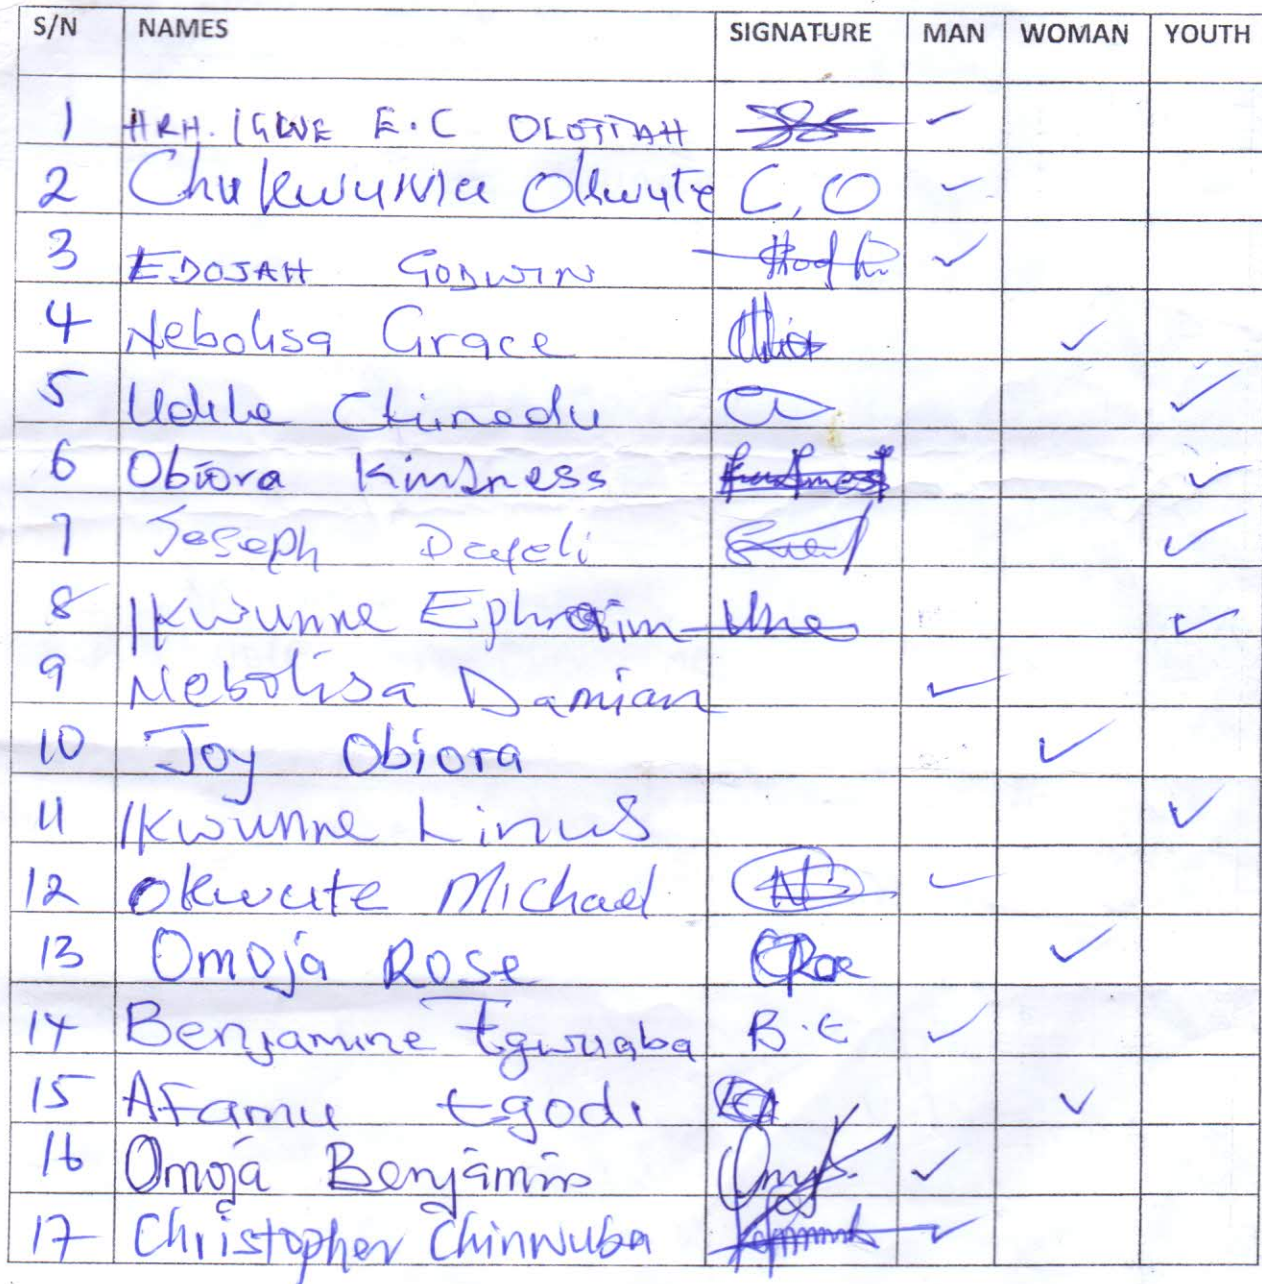 S/N NAMES SIGNATURE MAN WOMAN YOUTH
1 HRH. IGWE E.C ✓
2 Chukwuma Okwute C, O ✓
3 EDOJAH GODWIN ✓
4 Nebolisa Grace ✓
5 Udebe Chinedu ✓
6 Obiora Kindness Kindness ✓
7 Joseph ✓
8 Ikwunne Ephraim ✓
9 Nebolisa Damian ✓
10 Joy Obiora ✓
11 Ikwunne Linus ✓
12 Okwute Michael ✓
13 Omoja Rose ✓
14 Benjamine Egwuaba B.E ✓
15 Afamu Egodi ✓
16 Omoja Benjamin ✓
17 Christopher Chinwuba ✓